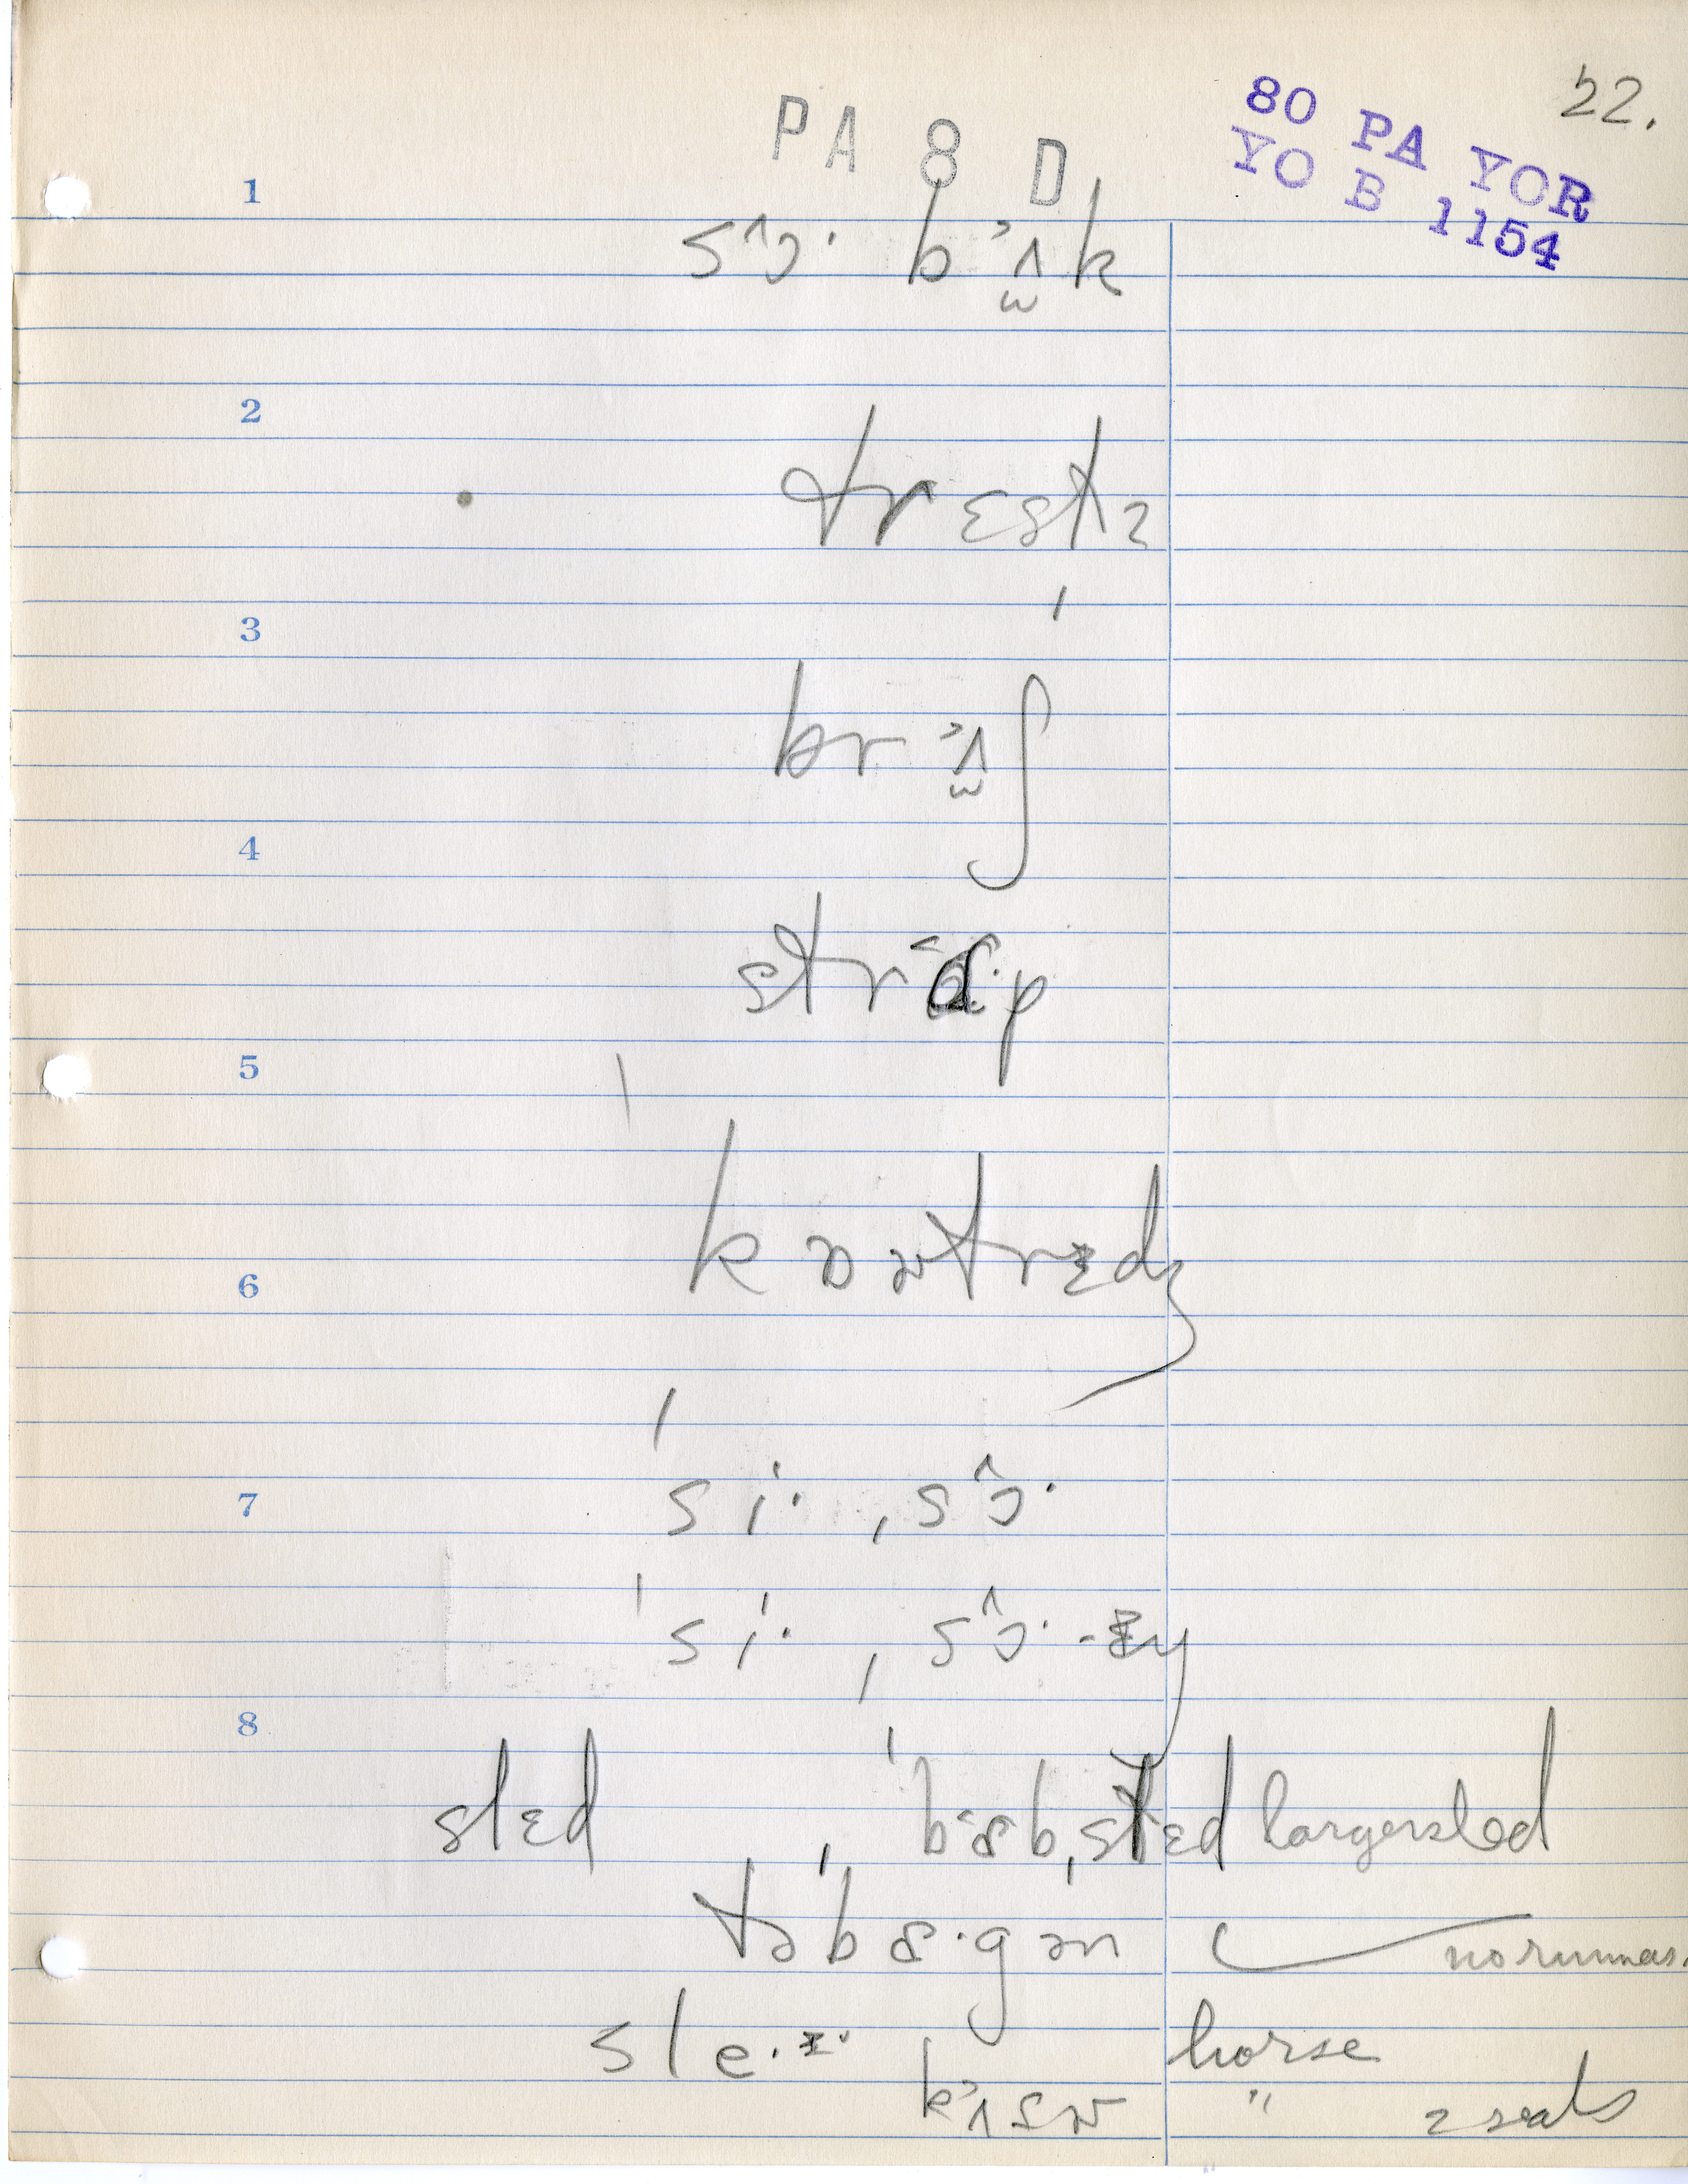 22.
PA 8 D
80 PA YOR
YO B 1154
1
sɔ^· bʌ̫˃k
2
trɛstz
3
brʌ̫˃ʃ
4
strɑ˂·p
5
ˈkɒntrɪdʒ
6
ˈsi·ˌsɔ^·
7
ˈsi·ˌsɔ^·-ɪŋ
8
slɛd ˈbɒbˌslɛd larger sled
təˈbɒ·gən no runners.
sle·ɪ· horse
kʌ˃sn " 2 seats